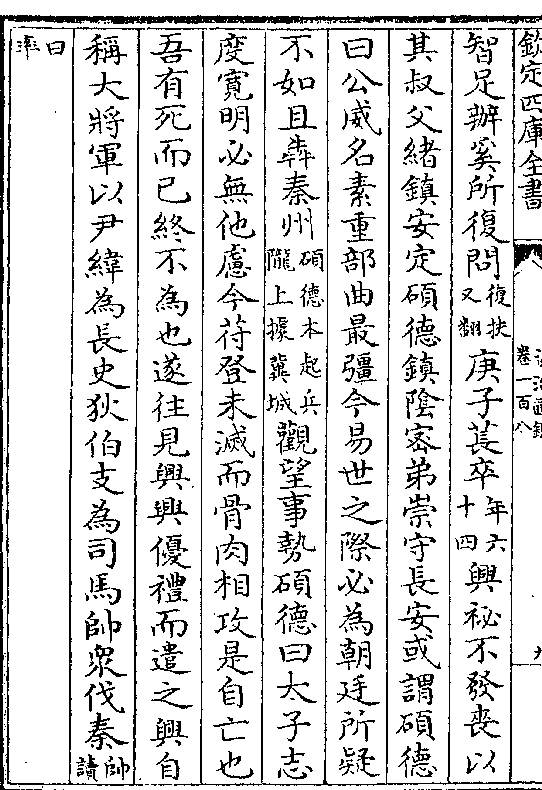 欽定四庫全書
卷一百八
九
智足辦奚所復問復扶又翻庚子萇卒年六十四興祕不發喪以
其叔父緒鎮安定碩德鎮陰密弟崇守長安或謂碩德
曰公威名素重部曲最彊今易世之際必為朝廷所疑
不如且犇秦州碩德本起兵隴上據冀城觀望事勢碩德曰太子志
度寛明必無他慮今苻登未滅而骨肉相攻是自亡也
吾有死而已終不為也遂往見興興優禮而遣之興自
稱大將軍以尹緯為長史狄伯支為司馬帥衆伐秦帥讀
曰率